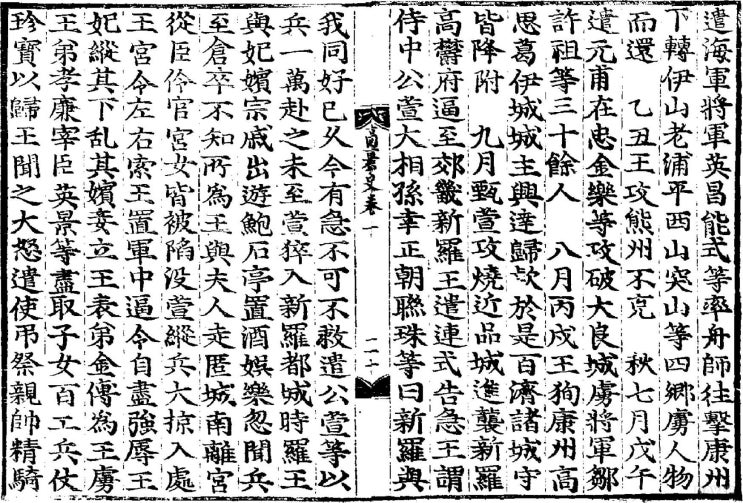 遣海軍將軍英昌能式等率舟師往擊康州
下轉伊山老浦平西山突山等四鄕虜人物
而還　乙丑王攻熊州不克　秋七月戊午
遣元甫在忠金樂等攻破大良城虜將軍鄒
許祖等三十餘人　八月丙戌王徇康州高
思葛伊城城主興達歸欵於是百濟諸城守
皆降附　九月甄萱攻燒近品城進襲新羅
高鬱府逼至郊畿新羅王遣連式告急王謂
侍中公萱大相孫幸正朝聯珠等曰新羅與
高麗史卷一
二十
我同好已久今有急不可不救遣公萱等以
兵一萬赴之未至萱猝入新羅都城時羅王
與妃嬪宗戚出遊鮑石亭置酒娛樂忽聞兵
至倉卒不知所爲王與夫人走匿城南離宮
從臣伶官宮女皆被陷沒萱縱兵大掠入處
王宮令左右索王置軍中逼令自盡強辱王
妃縱其下乱其嬪妾立王表弟金傅爲王虜
王弟孝廉宰臣英景等盡取子女百工兵仗
珍寶以歸王聞之大怒遣使吊祭親帥精騎